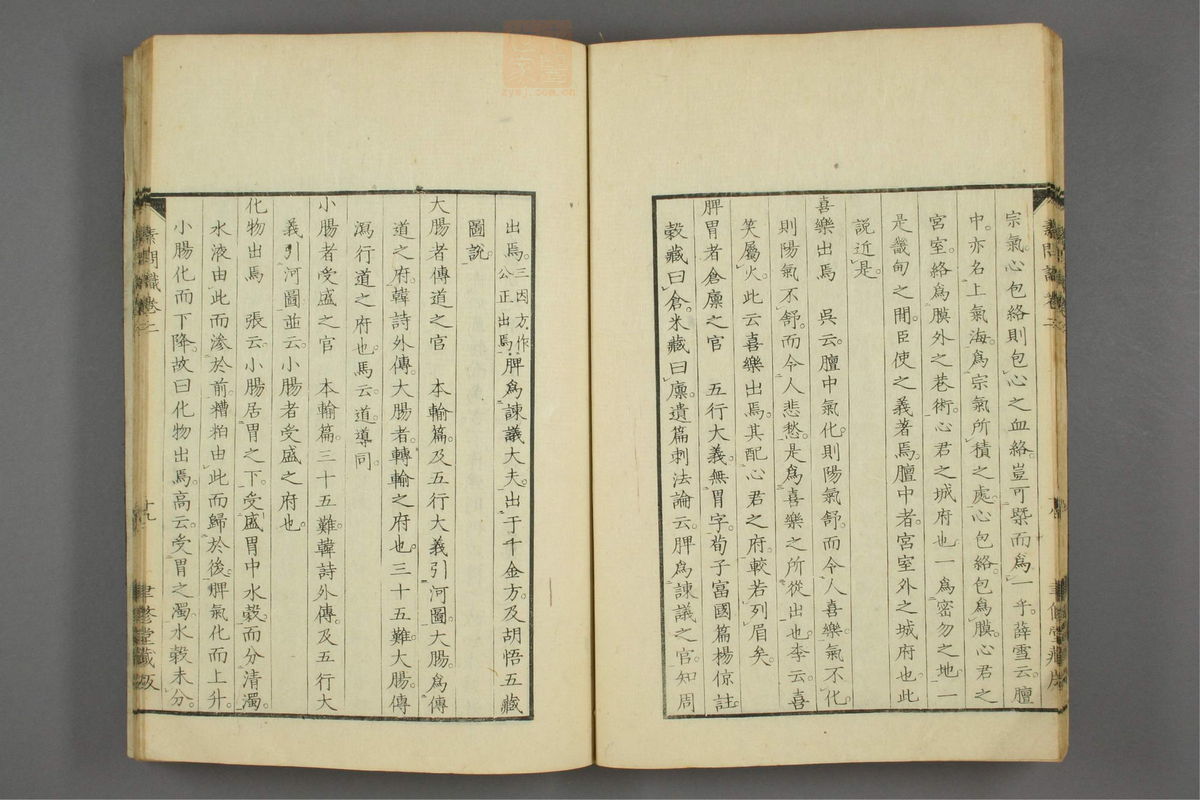 宗氣心包絡則包心之血絡豈可槩而爲一乎薛雪云膻
中亦名上氣海爲宗氣所積之處心包絡包爲膜心君之
宮室絡爲膜外之巷術心君之城府也一爲密勿之地一
是畿甸之間臣使之義著焉膻中者宮室外之城府也此
說近是
喜樂出焉　吳云膻中氣化則陽氣舒而令人喜樂氣不化
則陽氣不舒而令人悲愁是爲喜樂之所從出也李云喜
笑屬火此云喜樂出焉其配心君之府較若列眉矣
脾胃者倉廪之官　五行大義無胃字荀子富國篇楊倞註
穀藏曰倉米藏曰廪遺篇刺法論云脾爲諫議之官知周
出焉三因方作公正出焉脾爲諫議大夫出于千金方及胡悟五藏
圖說
大腸者傳道之官　本輸篇及五行大義引河圖大腸爲傳
道之府韓詩外傳大腸者轉輸之府也三十五難大腸傳
瀉行道之府也馬云道導同
小腸者受盛之官　本輸篇三十五難韓詩外傳及五行大
義引河圖並云小腸者受盛之府也
化物出焉　張云小腸居胃之下受盛胃中水穀而分清濁
水液由此而滲於前糟粕由此而歸於後脾氣化而上升
小腸化而下降故曰化物出焉高云受胃之濁水穀未分
素問識卷二
十九
聿修堂藏版